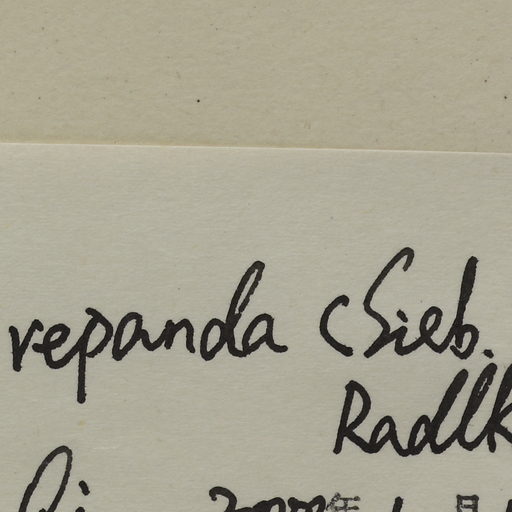 repanda (Sieb.
Radlk
年 月